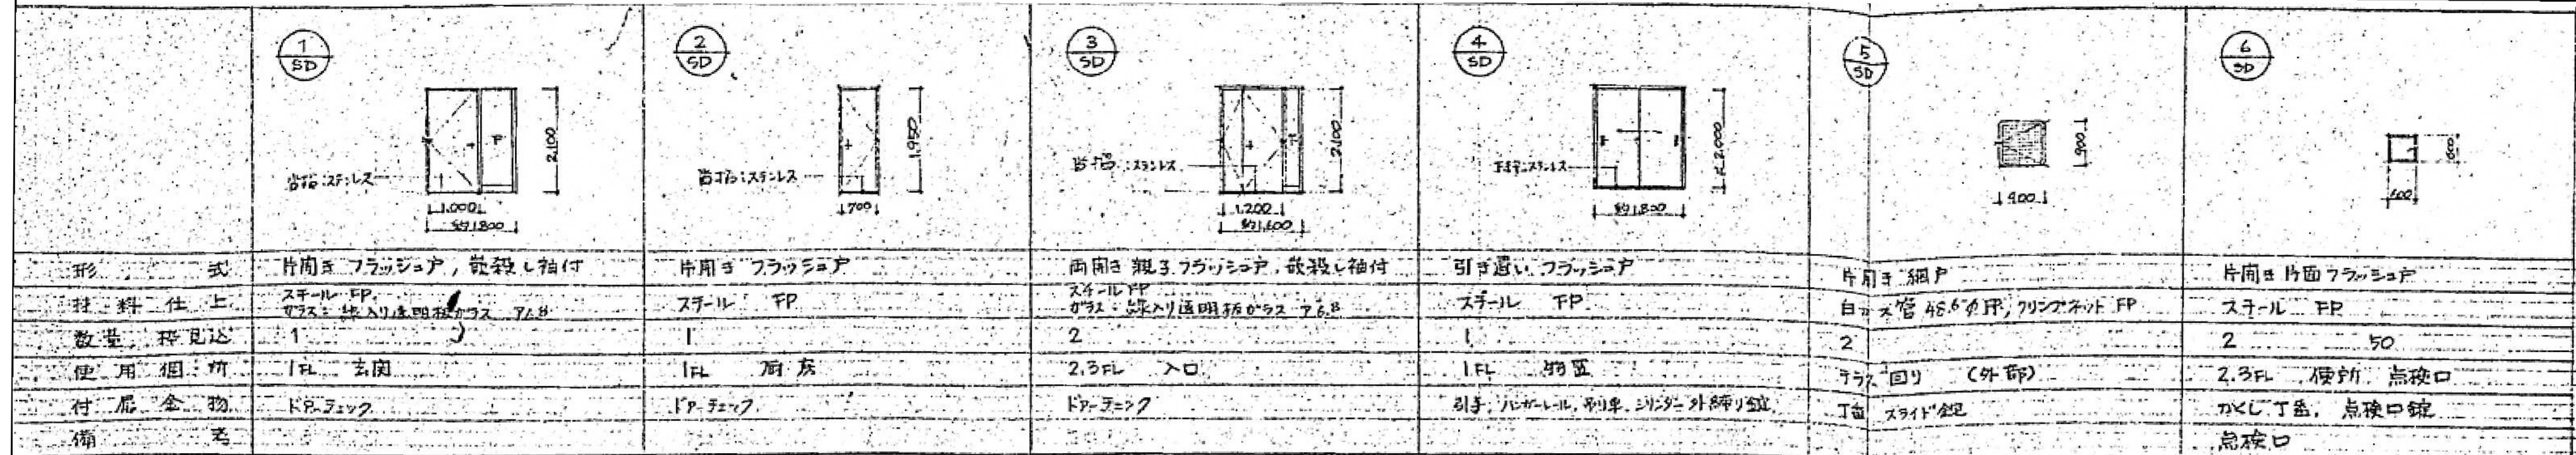 1
SD
2,100
沓摺:ステンレス
1,000
約1,800
2
SD
1,950
沓摺:ステンレス
700
3
SD
2,100
沓摺:ステンレス
1,200
約1,600
4
SD
2,000
ステンレス
約1,800
5
SD
900
900
6
SD
600
600
形式
片開き フラッシュ戸, 嵌殺し袖付
片開き フラッシュ戸
両開き 親子フラッシュ戸, 嵌殺し袖付
引き違い フラッシュ戸
片開き 網戸
片開き 片面フラッシュ戸
材料仕上
スチール FP.
ガラス:線入り透明板ガラス ア6.8
スチール FP
スチール FP
ガラス:線入り透明板ガラス ア6.8
スチール FP
白ガス管 48.6φ FP, クリンプネット FP
スチール FP
数量, 枠見込
1
1
2
1
2
2 50
使用個所
1FL 玄関
1FL 厨房
2.3FL 入口
1FL 物置
テラス回り (外部)
2.3FL 便所 点検口
付属金物
ドアーチェック
ドアーチェック
ドアーチェック
引手, ハンガーレール, 吊り車, シリンダー外締り錠
丁番 スライド錠
かくし丁番, 点検口錠
備考
点検口